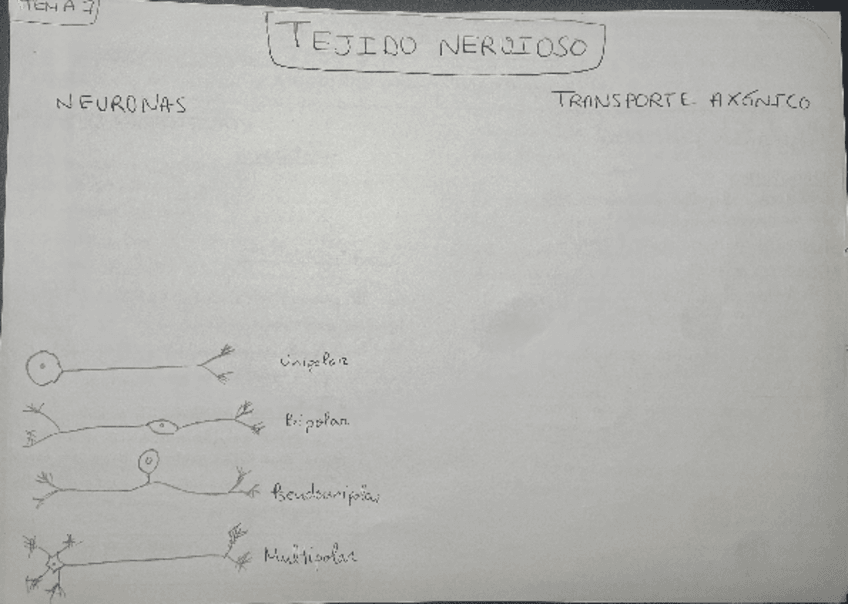 TEMA 7
TEJIDO NERVIOSO
NEURONAS
TRANSPORTE AXÓNICO
Unipolar
Bipolar
Pseudounipolar
Multipolar